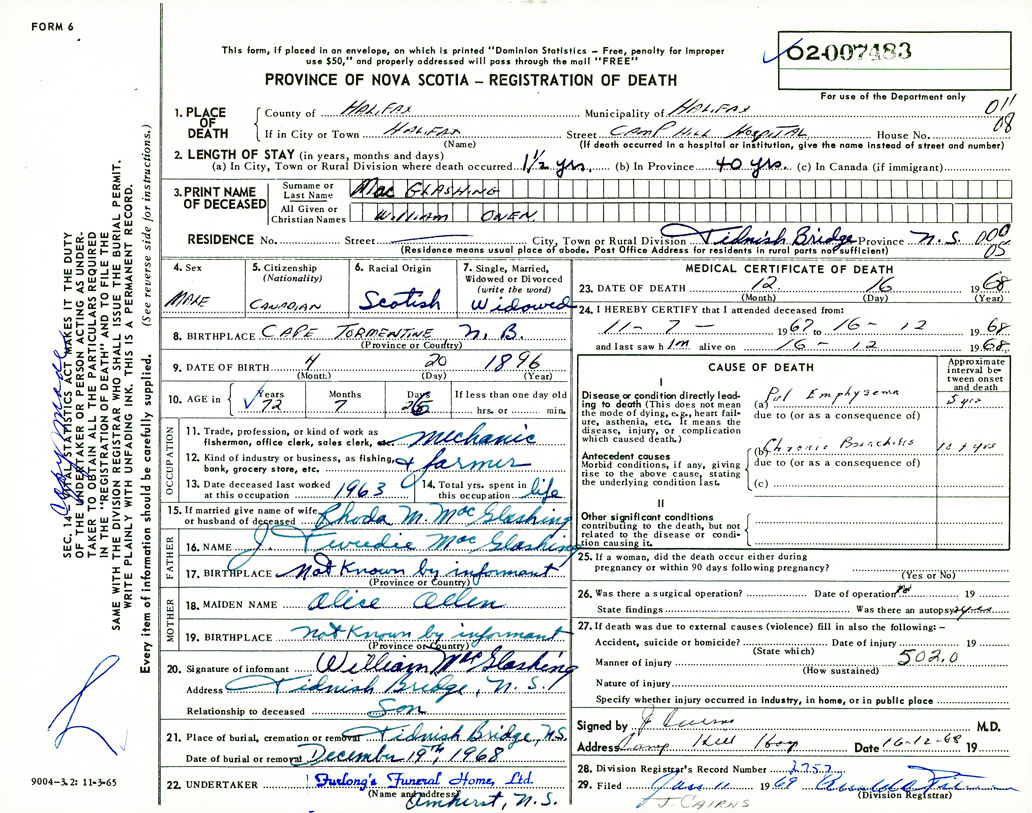 FORM 6
This form, if placed in an envelope, on which is printed "Dominion Statistics – Free, penalty for improper
use $50," and properly addressed will pass through the mail "FREE"
PROVINCE OF NOVA SCOTIA – REGISTRATION OF DEATH
02-007483
For use of the Department only
011
08
1. PLACE OF DEATH
County of HALIFAX Municipality of HALIFAX
If in City or Town HALIFAX Street CAMP HILL HOSPITAL House No.
(Name) (If death occurred in a hospital or institution, give the name instead of street and number)
2. LENGTH OF STAY (in years, months and days)
(a) In City, Town or Rural Division where death occurred 1½ yrs. (b) In Province 40 yrs. (c) In Canada (if immigrant)
3. PRINT NAME OF DECEASED
Surname or Last Name Mac GLASHING
All Given or Christian Names WILLIAM OWEN
RESIDENCE No. Street City, Town or Rural Division Tidnish Bridge Province N.S. 000
05
(Residence means usual place of abode. Post Office Address for residents in rural parts not sufficient)
4. Sex
MALE
5. Citizenship
(Nationality)
CANADIAN
6. Racial Origin
Scotish
7. Single, Married,
Widowed or Divorced
(write the word)
Widowed
8. BIRTHPLACE CAPE TORMENTINE N.B.
(Province or Country)
9. DATE OF BIRTH 4 20 1896
(Month) (Day) (Year)
10. AGE in Years 72 Months 7 Days 26 If less than one day old
hrs. or min.
OCCUPATION
11. Trade, profession, or kind of work as
fisherman, office clerk, sales clerk, etc. Mechanic
12. Kind of industry or business, as fishing,
bank, grocery store, etc. & farmer
13. Date deceased last worked
at this occupation 1963
14. Total yrs. spent in
this occupation life
15. If married give name of wife
or husband of deceased Rhoda M. MacGlashing
FATHER
16. NAME J. Tweedie MacGlashing
17. BIRTHPLACE Not Known by informant
(Province or Country)
MOTHER
18. MAIDEN NAME Alice Allen
19. BIRTHPLACE Not Known by informant
(Province or Country)
20. Signature of informant William MacGlashing
Address Tidnish Bridge, N.S.
Relationship to deceased Son
21. Place of burial, cremation or removal Tidnish Bridge, N.S.
Date of burial or removal December 19th, 1968
22. UNDERTAKER Furlong's Funeral Home, Ltd.
(Name and address) Amherst, N.S.
MEDICAL CERTIFICATE OF DEATH
23. DATE OF DEATH 12 16 1968
(Month) (Day) (Year)
24. I HEREBY CERTIFY that I attended deceased from:
11 - 7 - 1967 to 16 - 12 1968
and last saw him alive on 16 - 12 1968
CAUSE OF DEATH
Approximate interval between onset and death
I
Disease or condition directly leading to death (This does not mean the mode of dying, e.g., heart failure, asthenia, etc. It means the disease, injury, or complication which caused death.)
(a) Pul Emphysema 5 yrs
due to (or as a consequence of)
Antecedent causes
Morbid conditions, if any, giving rise to the above cause, stating the underlying condition last.
(b) Chronic Bronchitis 10 + yrs
due to (or as a consequence of)
(c)
II
Other significant conditions
contributing to the death, but not related to the disease or condition causing it.
25. If a woman, did the death occur either during
pregnancy or within 90 days following pregnancy?
(Yes or No)
26. Was there a surgical operation? Date of operation 19
State findings Was there an autopsy?
27. If death was due to external causes (violence) fill in also the following: –
Accident, suicide or homicide? Date of injury 19
(State which)
Manner of injury 502.0
(How sustained)
Nature of injury
Specify whether injury occurred in industry, in home, or in public place
Signed by J Cairns M.D.
Address Camp Hill Hosp Date 16-12-68 19
28. Division Registrar's Record Number 2757
29. Filed Jan 11 1969
(Division Registrar)
J. CAIRNS
SEC. 14 – VITAL STATISTICS ACT MAKES IT THE DUTY
OF THE UNDERTAKER OR PERSON ACTING AS UNDER-
TAKER TO OBTAIN ALL THE PARTICULARS REQUIRED
IN THE "REGISTRATION OF DEATH" AND TO FILE THE
SAME WITH THE DIVISION REGISTRAR WHO SHALL ISSUE THE BURIAL PERMIT.
WRITE PLAINLY WITH UNFADING INK. THIS IS A PERMANENT RECORD.
Every item of information should be carefully supplied. (See reverse side for instructions.)
copy made
9004-3.2: 11-3-65